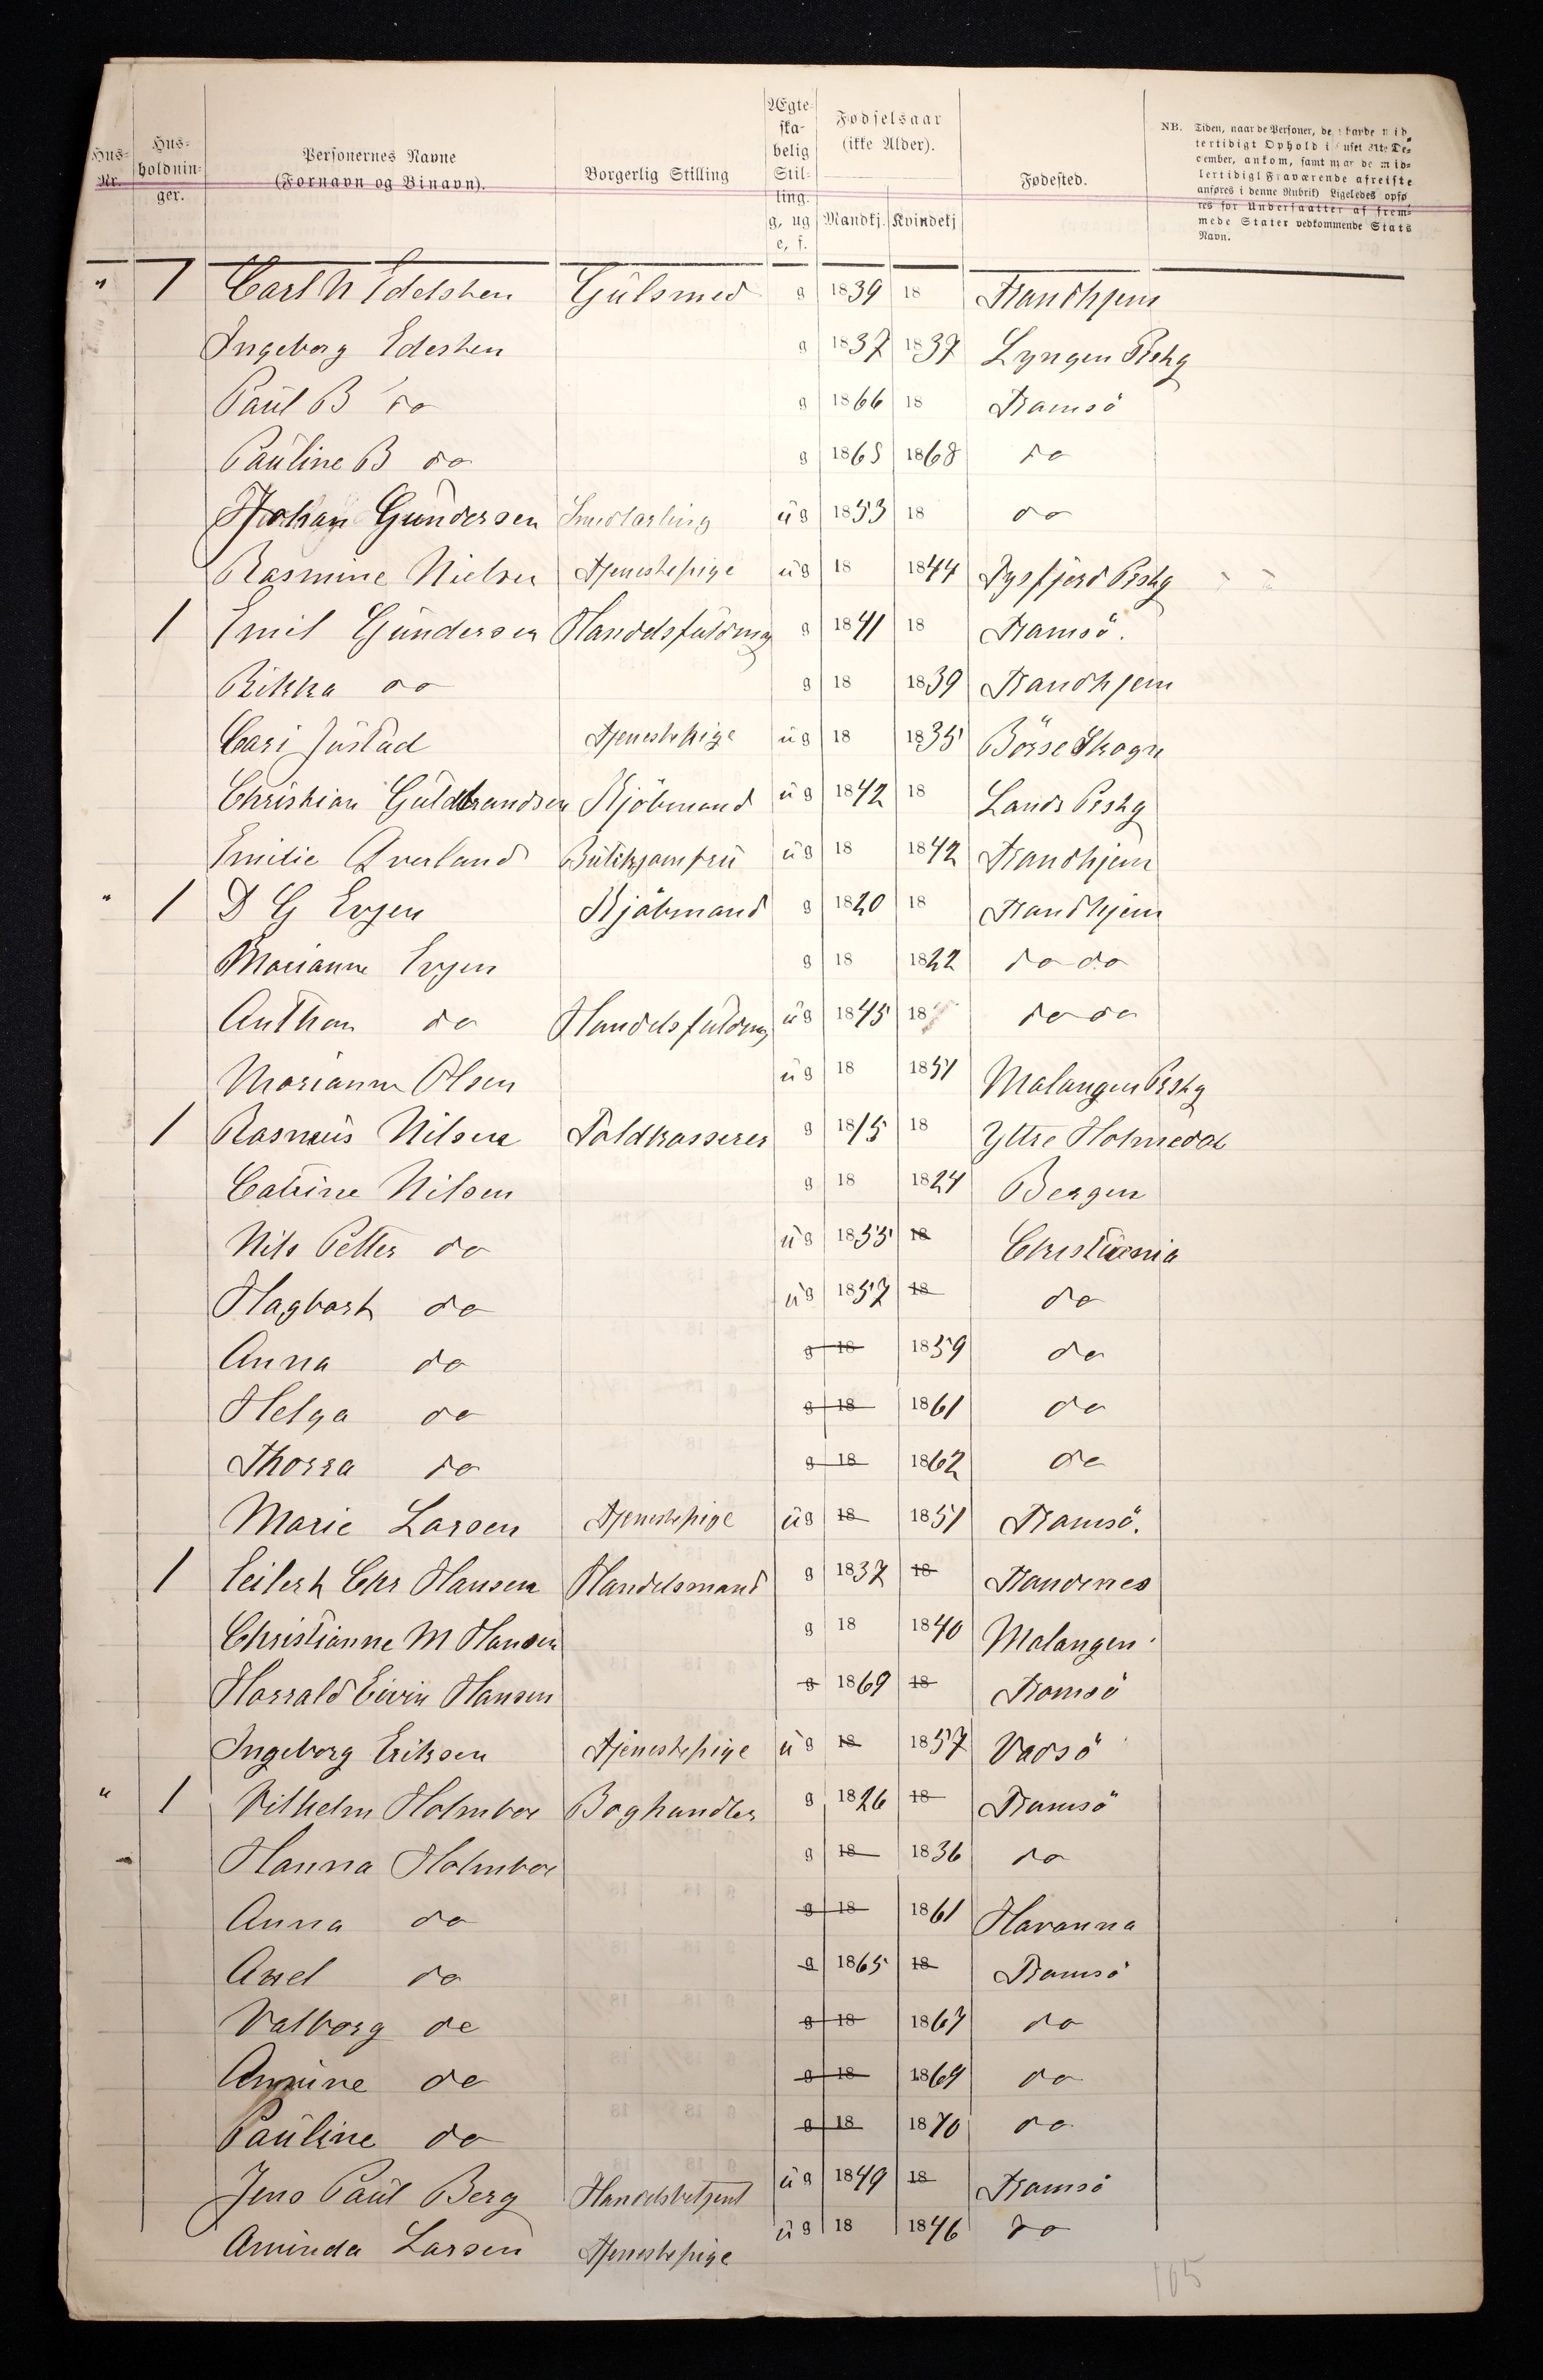 Hus-Nr. Hus-holdnin-ger. Personernes Navne (Fornavn og Binavn). Borgerlig Stilling Ægte-ska-belig Stil-ling. g, ug e, f. Fødselsaar (ikke Alder). Mandkj. Kvindekj Fødested. NB. Tiden, naar de Personer, de havde mid-
lertidigt Ophold i Huset 31te De-
cember, ankom, samt naar de mid-
lertidigt Fraværende afreiste
anføres i denne Rubrik) Ligeledes opfø-
res for Undersaatter af frem-
mede Stater vedkommende Stats
Navn.
" 1 Carl N Edelsten Gulsmed g 1839 18 Trondhjem
Ingeborg Edesten g 1837 1837 Lyngen Prstg
Paul B do g 1866 18 Tromsö
Pauline B do g 1868 1868 do
Johan Gundersen Smedlærling ug 1853 18 do
Rasmine Nielsen Tjenestepige ug 18 1844 Tysfjord Prstg
1 Emil Gundersen Handelsfuldmg g 1841 18 Tromsö.
Rikka do g 18 1839 Trondhjem
Cari Justad Tjenestepige ug 18 1835 Börse Skogn
Christian Guldbrandsen Kjöbmand ug 1842 18 Lands Prstg
Emilie Qverland Butikjomfru ug 18 1842 Trondhjem
" 1 D G Evjen Kjöbmand g 1820 18 Trondhjem
Marianne Evjen g 18 1822 do do
Anthon do Handelsfuldmg ug 1845 18 do do
Marianne Olsen ug 18 1851 Malangen Prstg
1 Rasmus Nilsen Toldkasserer g 1815 18 Yttre Holmedal
Catrine Nilsen g 18 1824 Bergen
Nils Petter do ug 1855 18 Christiania
Hagbart do ug 1857 18 do
Anna do g 18 1859 do
Helga do g 18 1861 do
Thorra do g 18 1862 do
Marie Larsen Tjenestepige ug 18 1851 Tromsö.
1 Eilert Chr Hansen Handelsmand g 1837 18 Trondenes
Christianne M Hansen g 18 1840 Malangen
Harrald Eivin Hansen g 1869 18 Tromsö
Ingeborg Eriksen Tjenestepige ug 18 1857 Vadsö
" 1 Vilhelm Holmboe Boghandler g 1826 18 Tromsö
Hanna Holmboe g 18 1836 do
Anna do g 18 1861 Havanna
Axel do g 1865 18 Tromsö
Valborg do g 18 1867 do
Annine do g 18 1869 do
Pauline do g 18 1870 do
Jens Paul Berg Handelsbetjent ug 1849 18 Tromsö
Aminda Larsen Tjenestepige ug 18 1846 do
105